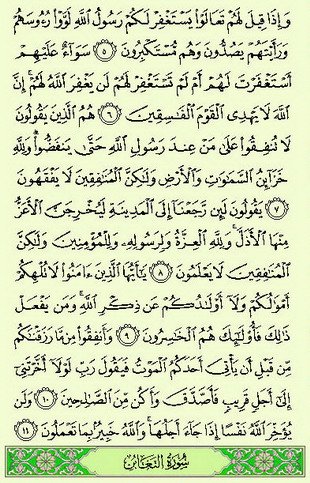 وَإِذَا قِيلَ لَهُمْ تَعَالَوْا۟ يَسْتَغْفِرْ لَكُمْ رَسُولُ ٱللَّهِ لَوَّوْا۟ رُءُوسَهُمْ
وَرَأَيْتَهُمْ يَصُدُّونَ وَهُم مُّسْتَكْبِرُونَ ٥ سَوَآءٌ عَلَيْهِمْ
أَسْتَغْفَرْتَ لَهُمْ أَمْ لَمْ تَسْتَغْفِرْ لَهُمْ لَن يَغْفِرَ ٱللَّهُ لَهُمْ ۚ إِنَّ
ٱللَّهَ لَا يَهْدِى ٱلْقَوْمَ ٱلْفَٰسِقِينَ ٦ هُمُ ٱلَّذِينَ يَقُولُونَ
لَا تُنفِقُوا۟ عَلَىٰ مَنْ عِندَ رَسُولِ ٱللَّهِ حَتَّىٰ يَنفَضُّوا۟ ۗ وَلِلَّهِ
خَزَآئِنُ ٱلسَّمَٰوَٰتِ وَٱلْأَرْضِ وَلَٰكِنَّ ٱلْمُنَٰفِقِينَ لَا يَفْقَهُونَ
٧ يَقُولُونَ لَئِن رَّجَعْنَآ إِلَى ٱلْمَدِينَةِ لَيُخْرِجَنَّ ٱلْأَعَزُّ
مِنْهَا ٱلْأَذَلَّ ۚ وَلِلَّهِ ٱلْعِزَّةُ وَلِرَسُولِهِۦ وَلِلْمُؤْمِنِينَ وَلَٰكِنَّ
ٱلْمُنَٰفِقِينَ لَا يَعْلَمُونَ ٨ يَٰٓأَيُّهَا ٱلَّذِينَ ءَامَنُوا۟ لَا تُلْهِكُمْ
أَمْوَٰلُكُمْ وَلَآ أَوْلَٰدُكُمْ عَن ذِكْرِ ٱللَّهِ ۚ وَمَن يَفْعَلْ
ذَٰلِكَ فَأُو۟لَٰٓئِكَ هُمُ ٱلْخَٰسِرُونَ ٩ وَأَنفِقُوا۟ مِن مَّا رَزَقْنَٰكُم
مِّن قَبْلِ أَن يَأْتِىَ أَحَدَكُمُ ٱلْمَوْتُ فَيَقُولَ رَبِّ لَوْلَآ أَخَّرْتَنِىٓ
إِلَىٰٓ أَجَلٍ قَرِيبٍ فَأَصَّدَّقَ وَأَكُن مِّنَ ٱلصَّٰلِحِينَ ١٠ وَلَن
يُؤَخِّرَ ٱللَّهُ نَفْسًا إِذَا جَآءَ أَجَلُهَا ۚ وَٱللَّهُ خَبِيرٌۢ بِمَا تَعْمَلُونَ ١١
سُورَةُ التَّغَابُنِ